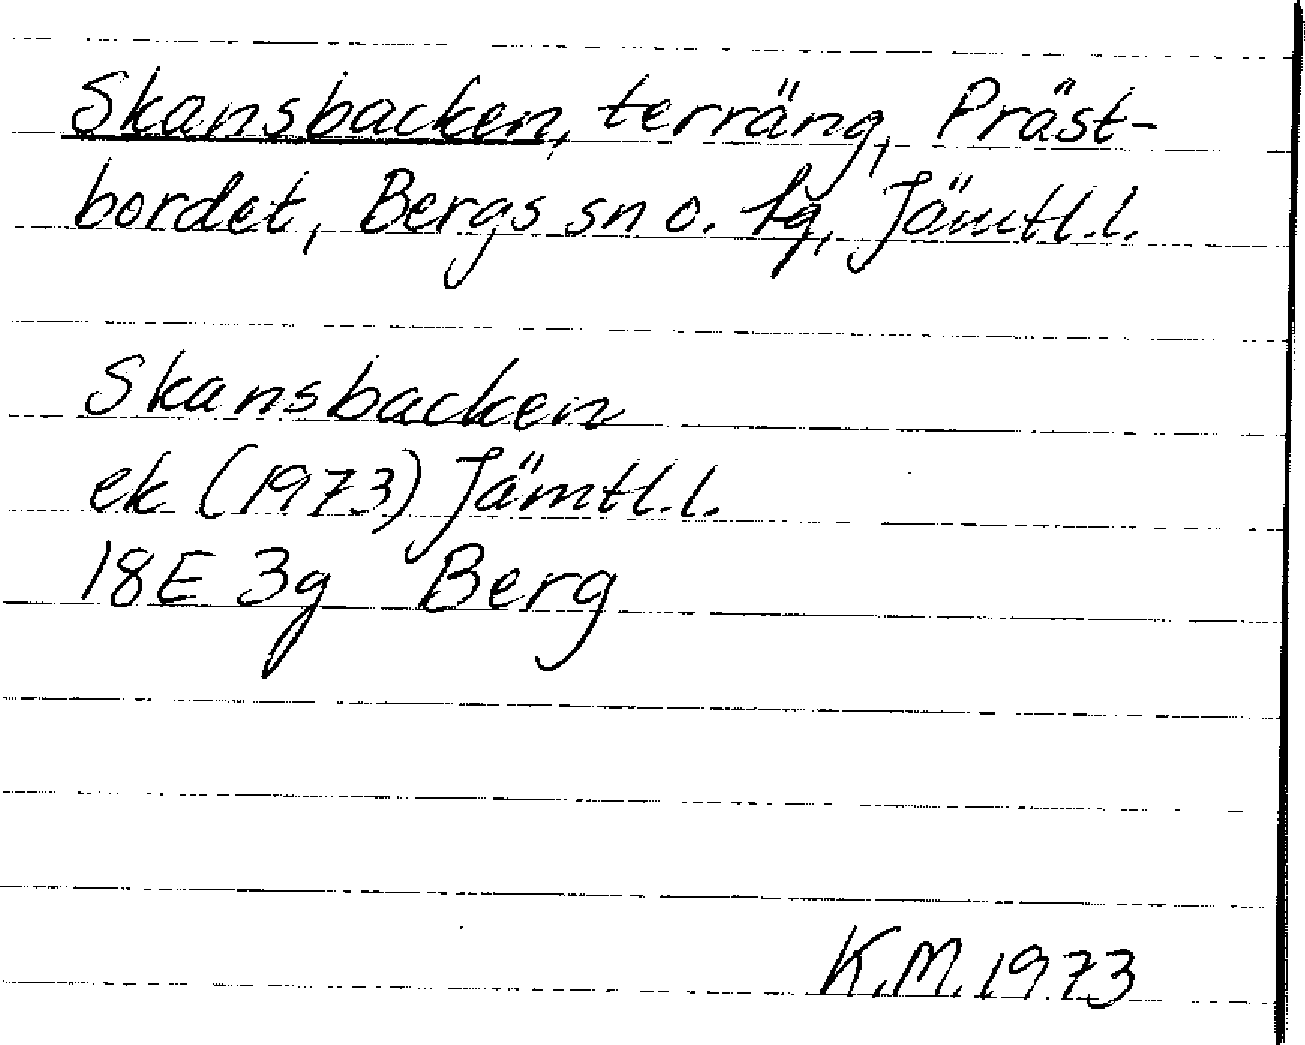 Skansbacken, terräng, Präst-
bordet, Bergs sn o. tg, Jämtl.l.
Skansbacken
ek (1973) Jämtl.l.
18E 3g Berg
K.M. 1973